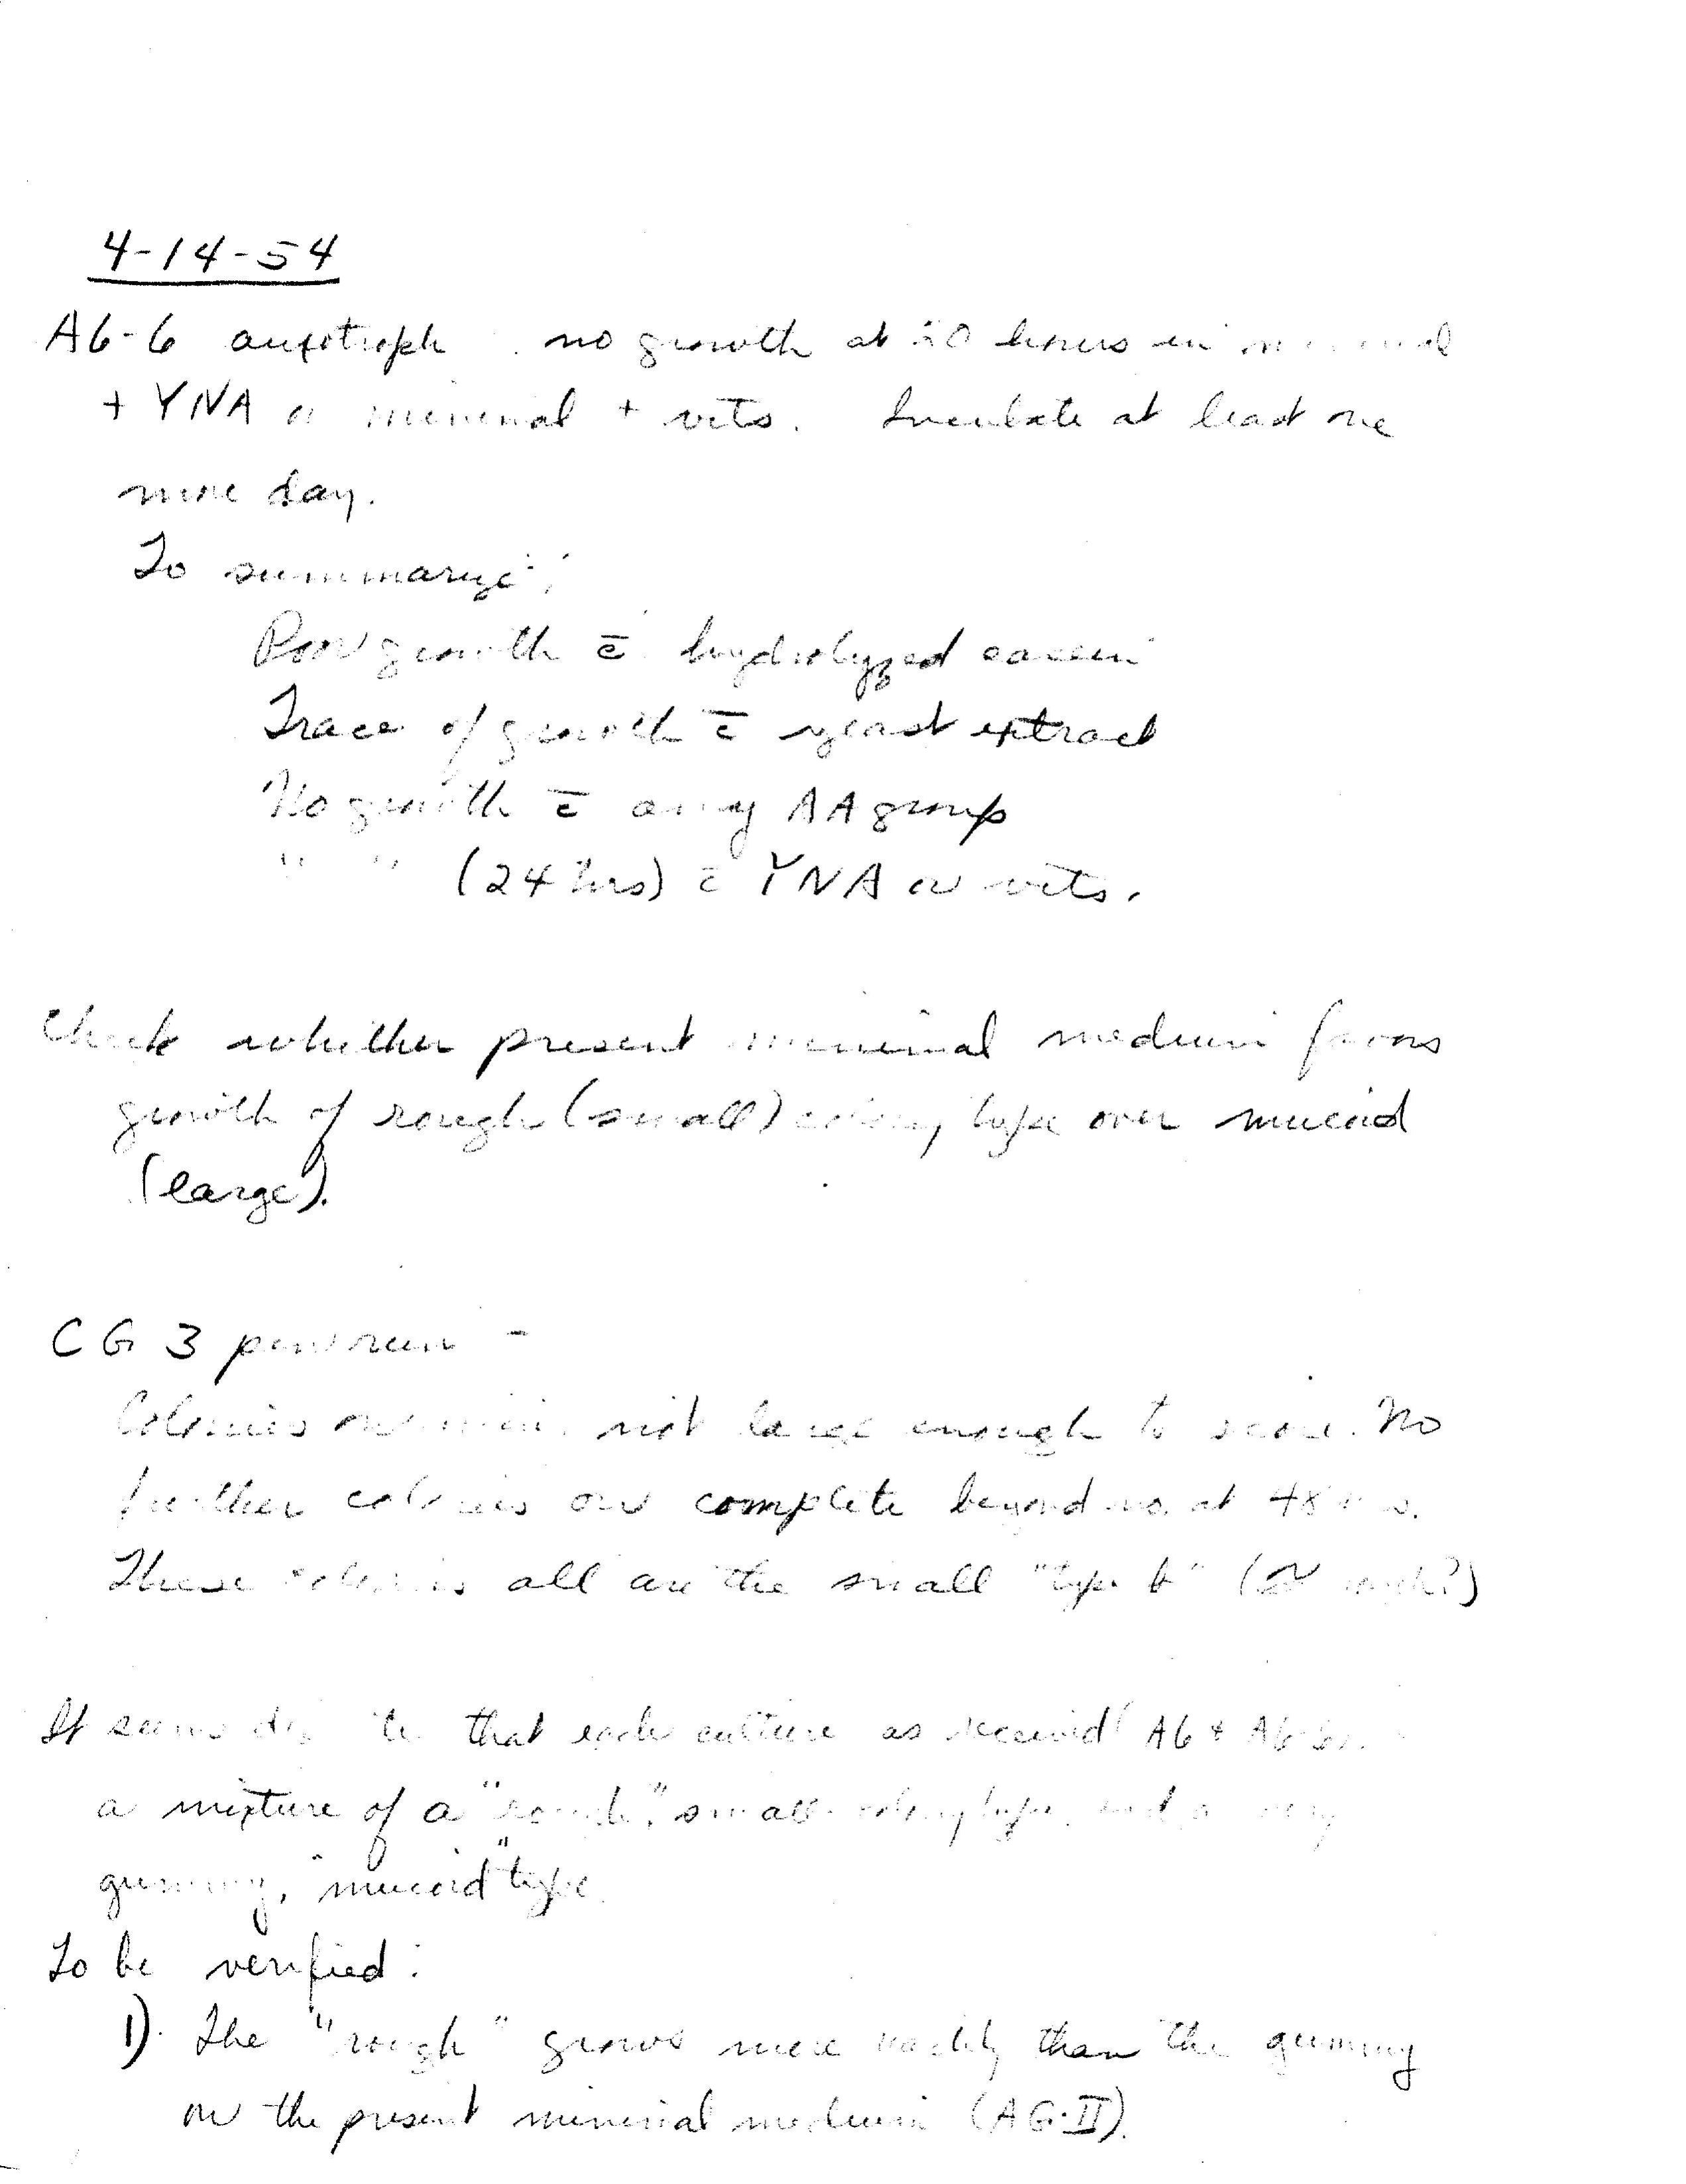 4-14-54
A6-6 auxotroph. no growth at 20 hours in minimal
+ YNA or minimal + vits. Incubate at least one
more day.
To summarize:
Poor growth c̄ hydrolyzed casein
Trace of growth c̄ yeast extract
No growth c̄ any AA group
" " (24 hrs) c̄ YNA or vits.
Check whether present minimal medium favors
growth of rough (small) colony type over mucoid
(large).
CG 3 pen run -
Colonies on min. not large enough to score. No
further colonies on complete beyond no. at 48 hrs.
These colonies all are the small "type b" (~ rough?)
It seems that each culture as received (A6 & A6-6)
a mixture of a "rough", small colony type, and a very
gummy, "mucoid" type.
To be verified:
1). The "rough" grows more readily than the gummy
on the present minimal medium (AG·II).